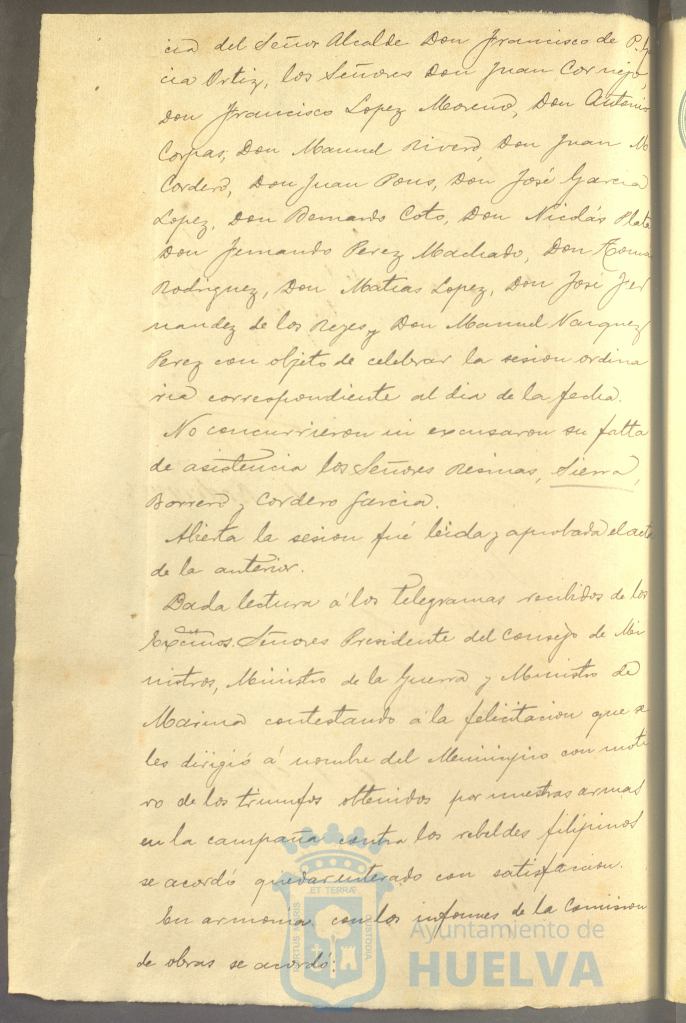 cia del Señor Alcalde Don Francisco de P. Ga
cia Ortiz, los Señores Don Juan Cornejo,
Don Francisco Lopez Moreno, Don Antonio
Corpas, Don Manuel Rivero, Don Juan M
Cordero, Don Juan Pons, Don José Garcia
Lopez, Don Bernardo Coto, Don Nicolás Plata
Don Fernando Perez Machado, Don Roma
Rodriguez, Don Matias Lopez, Don José Fer
nandez de los Reyes y Don Manuel Vazquez
Perez con objeto de celebrar la sesion ordina
ria correspondiente al dia de la fecha.
No concurrieron ni excusaron su falta
de asistencia los Señores Resinas, Sierra,
Borrero y Cordero Garcia.
Abierta la sesion fué leida y aprobada el acta
de la anterior.
Dada lectura á los telegramas recibidos de los
Excmos. Señores Presidente del Consejo de Mi
nistros, Ministro de la Guerra y Ministro de
Marina contestando á la felicitacion que se
les dirigió á nombre del Municipio con moti
vo de los triunfos obtenidos por nuestras armas
en la campaña contra los rebeldes filipinos
se acordó quedar enterado con satisfacion.
En armonia con los informes de la Comision
de obras se acordó:
ET TERRÆ
PORTUS MARIS
CUSTODIA
Ayuntamiento de
HUELVA